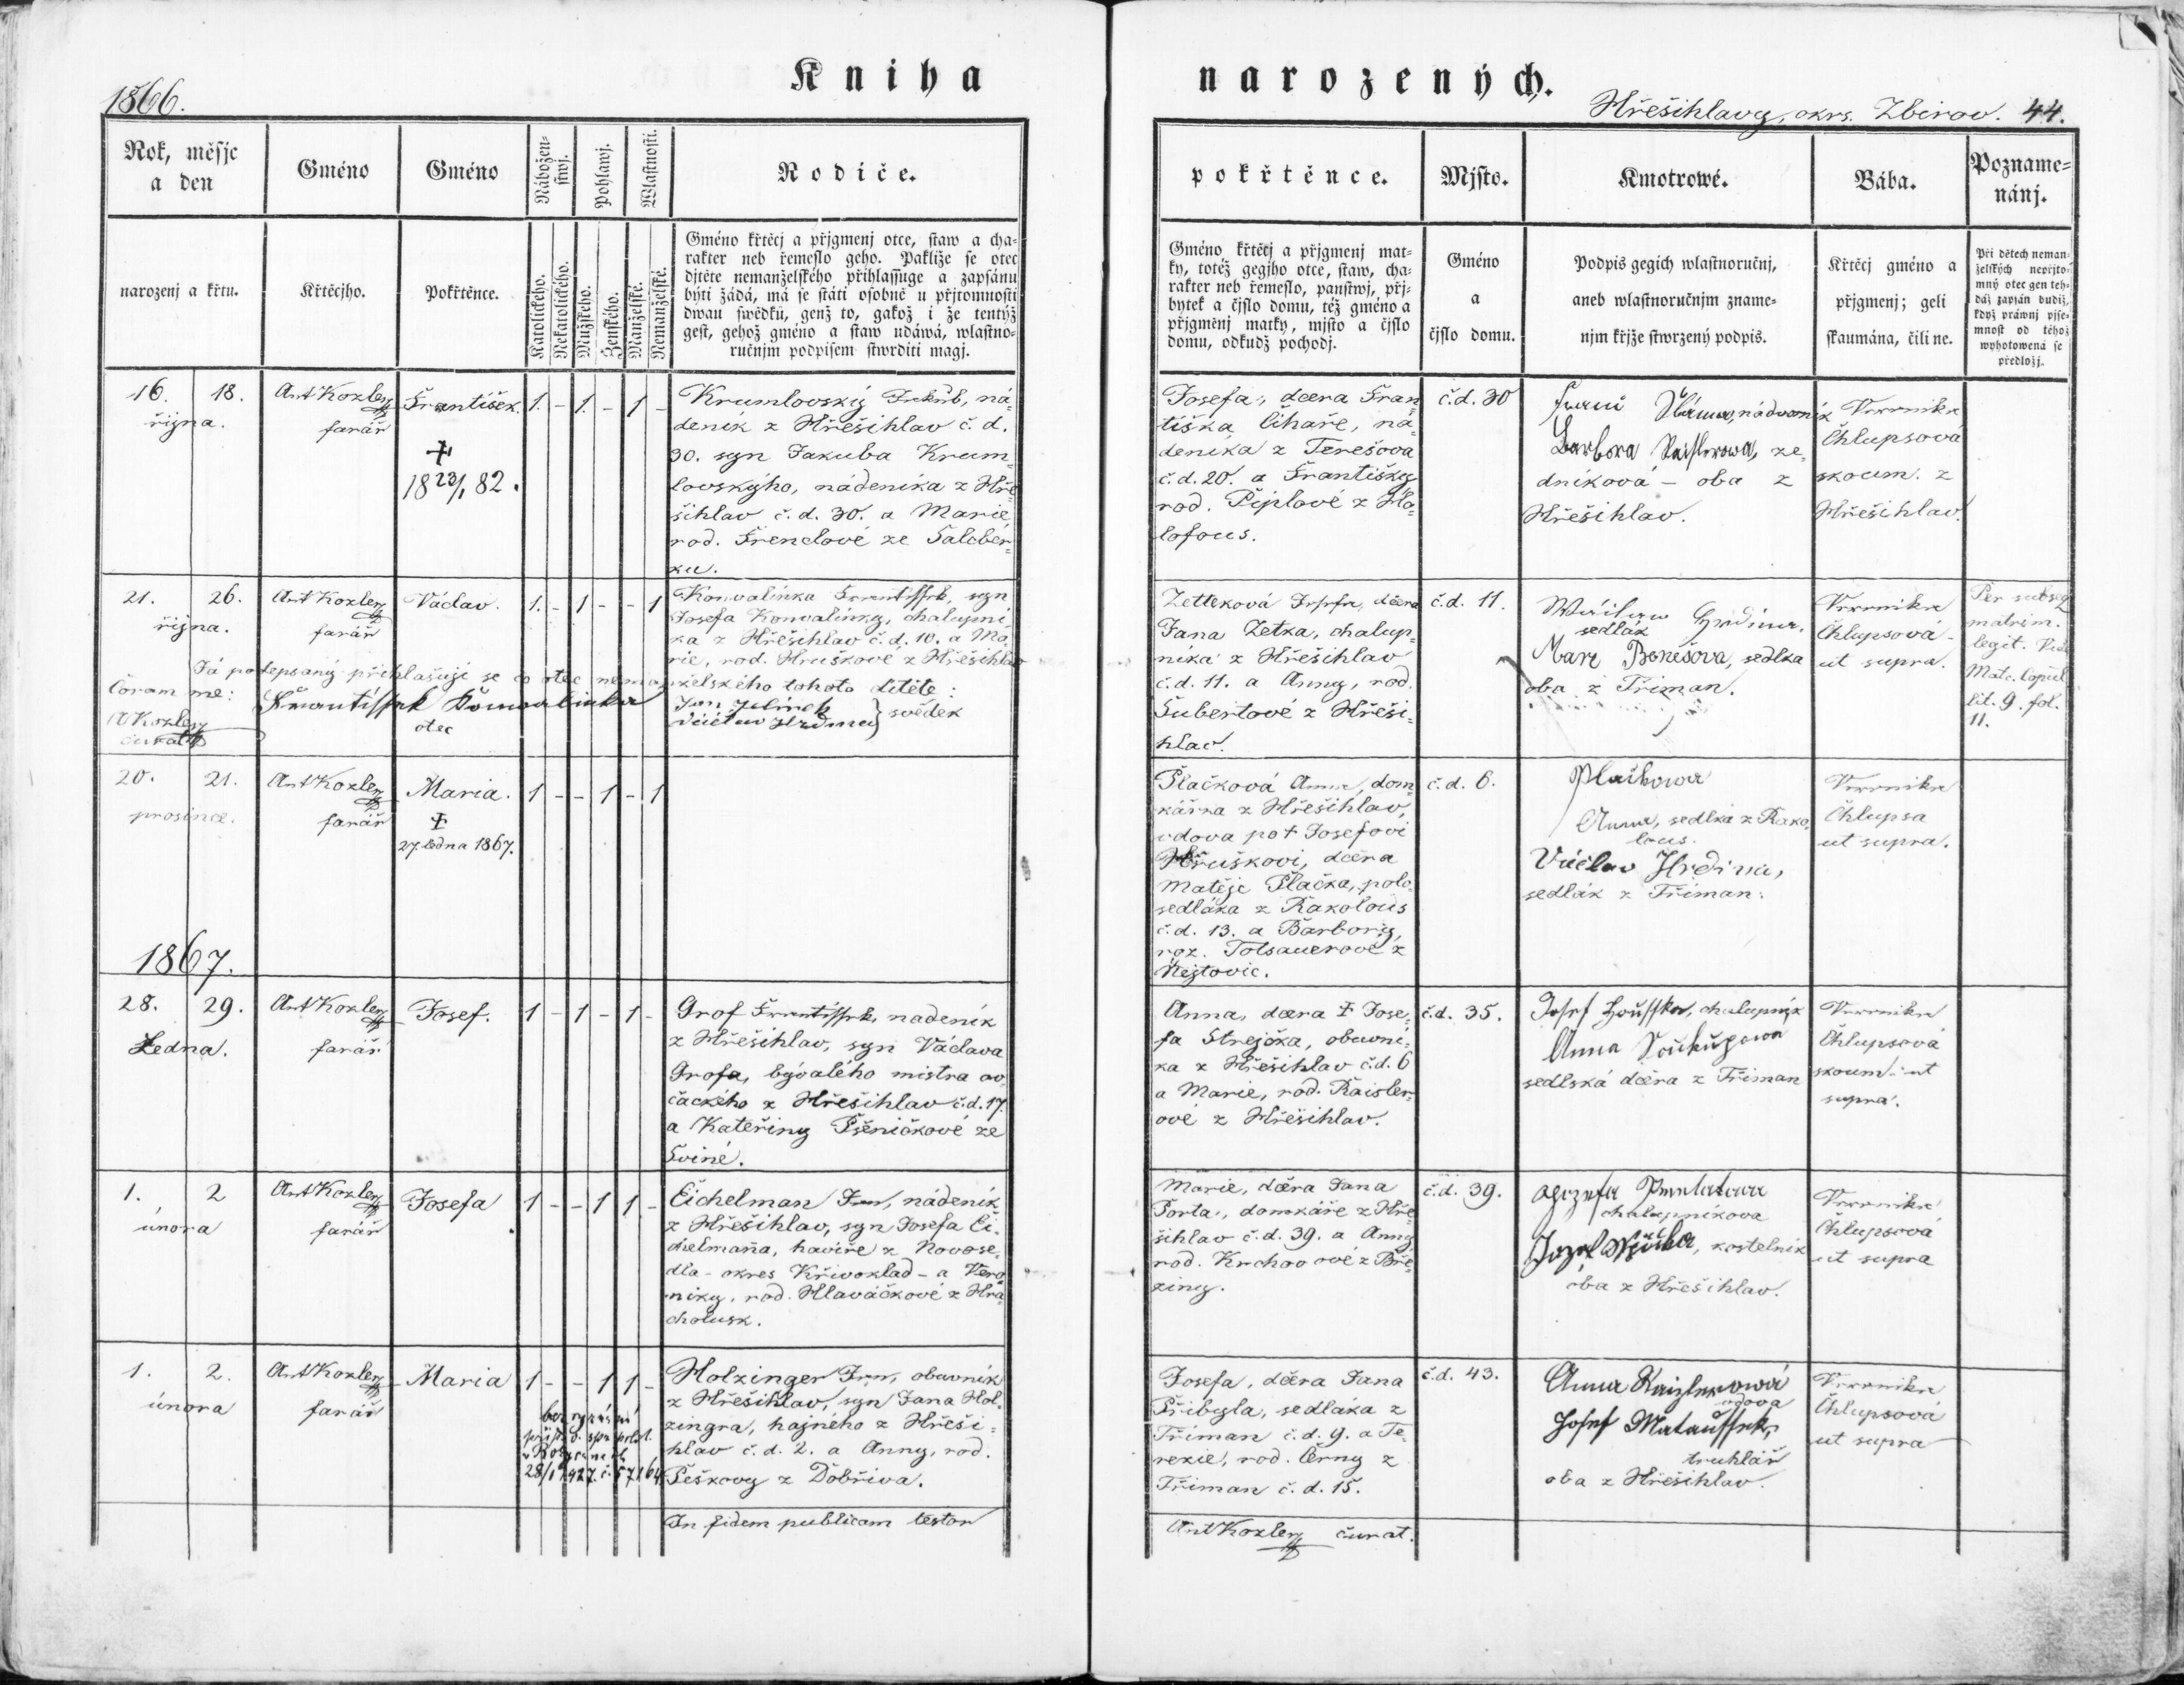 Kniha narozených.
1866.
Hřešihlavy, okrs. Zbirov. 44.
Rok, měsjc a den
Gméno
Gméno
Nábožen-stwj.
Pohlawj.
Wlastnosti.
Rodiče.
pokřtěnce.
Mjsto.
Kmotrowé.
Bába.
Pozname-nánj.
narozenj a křtu.
Křtěcjho.
Pokřtěnce.
Katolického.
Nekatolického.
Mužského.
Ženského.
Manželské.
Nemanželské.
Gméno křtěcj a přjgmenj otce, staw a cha-
rakter neb řemeslo geho. Pakliže se otec
djtěte nemanželského přihlassuge a zapsánu
býti žádá, má se státi osobně u přjtomnosti
dwau swědků, genž to, gakož i že tentýž
gest, gehož gméno a staw udáwá, wlastno-
ručnjm podpisem stwrditi magj.
Gméno křtěcj a přjgmenj mat-
ky, totéž gegjho otce, staw, cha-
rakter neb řemeslo, panstwj, přj-
bytek a čjslo domu, též gméno a
přjgměnj matky, mjsto a čjslo
domu, odkudž pochodj.
Gméno
a
čjslo domu.
Podpis gegich wlastnoručnj,
aneb wlastnoručnjm zname-
njm křjže stwrzený podpis.
Křtěcj gméno a
přjgmenj; geli
skaumána, čili ne.
Při dětech neman-
želských nepřjto-
mný otec gen teh-
dáž zapsán budiž,
když práwnj pjse-
mnost od téhož
wyhotowená se
předložj.
16. 18.
října.
Ant Kozler
farář
František.
+
18 23/1 82.
1. - 1. - 1 -
Krumlovský Jakub, ná-
deník z Hřešihlav č. d.
30. syn Jakuba Krum-
lovskýho, nádeníka z Hře
šihlav č. d. 30. a Marie
rod. Frenclové ze Salcber-
ku.
Josefa, dcera Fran-
tiška Cihaře, ná-
deníka z Terešova
č. d. 20. a Františky
rod. Piplové z Ho-
lofous.
č. d. 30
Sláma, nádvorník
Barbora Raislerowa, ze-
dníková - oba z
Hřešihlav.
Veronika
Chlupsová
skoum. z
Hřešihlav.
21. 26.
října.
Ant Kozler
farář
Václav.
1. - 1 - - 1
Konvalinka Frantissek, syn
Josefa Konvalinky, chalupní-
ka z Hřešihlav č. d. 10. a Ma-
rie, rod. Hruškové z Hřešihlav
Já podepsaný přihlašuji se co otec nemanželského tohoto dítěte:
Čoram me:
A Kozler
curat
Frantissek Konvalinka
otec
Jan Jelínek
Václav Hrdina } svědek
Zetteková Josefa, dcera
Jana Zetka, chalup-
níka z Hřešihlav
č. d. 11. a Anny, rod.
Šubertové z Hřeši-
hlav.
č. d. 11.
Wáclaw Hrdina.
sedlák
Mary Benešova, sedlka
oba z Tříman.
Veronika
Chlupsová -
ut supra.
Per subseq
matrim.
legit. Vide
Matr. Copul
lit. 9. fol.
11.
20. 21.
prosince.
Ant Kozler
farář
Maria.
+
27. ledna 1867.
1 - - 1 - 1
Plačková Anna, dom-
kářka z Hřešihlav,
vdova po + Josefovi
Hruškovi, dcera
Matěje Plačka, polo-
sedláka z Rakolous
č. d. 13. a Barbory,
roz. Tolsauerové z
Nejtovic.
č. d. 6.
Plačkowa
Anna, sedlka z Rako-
lous.
Václav Hrdina,
sedlák z Tříman.
Veronika
Chlupsa
ut supra.
1867.
28. 29.
Ledna.
Ant Kozler
farář
Josef.
1 - 1 - 1 -
Grof Frantissek, nádeník
z Hřešihlav, syn Václava
Grofa, bývalého mistra ov-
čackého z Hřešihlav č. d. 17.
a Kateřiny Pšeničkové ze
Sviné.
Anna, dcera + Jose-
fa Strejčka, obuvní-
ka z Hřešihlav č. d. 6
a Marie, rod. Raisler-
ové z Hřešihlav.
č. d. 35.
Josef Housska, chalupník
Anna Soukupowa
sedlská dcera z Tříman
Veronika
Chlupsová
skoum. ut
supra.
1. 2
února
Ant Kozler
farář
Josefa
1 - - 1 1 -
Eichelman Jan, nádeník
z Hřešihlav, syn Josefa Ei-
chelmana, havíře z Novose-
dla - okres Křivoklad - a Vero-
niky, rod. Hlaváčkové z Hra-
cholusk.
Marie, dcera Jana
Porta, domkáře z Hře
šihlav č. d. 39. a Anny
rod. Krchovové z Bře-
ziny.
č. d. 39.
chalupníkova
kostelník
oba z Hřešihlav.
Veronika
Chlupsová
ut supra
1. 2.
února
Ant Kozler
farář
Maria
1 - - 1 1 -
28/1 1927 č. 57164
Holzinger Jan, obuvník
z Hřešihlav, syn Jana Hol-
zingra, hajného z Hřeši-
hlav č. d. 2. a Anny, rod.
Peškovy z Dobřiva.
Josefa, dcera Jana
Přibyla, sedláka z
Tříman č. d. 9. a Te-
rezie, rod. Černy z
Tříman č. d. 15.
č. d. 43.
Anna Raizlerowá
vdova
Josef Mataussek,
truhlář
oba z Hřešihlav.
Veronika
Chlupsová
ut supra
In fidem publicam testor
Ant Kozler curat.